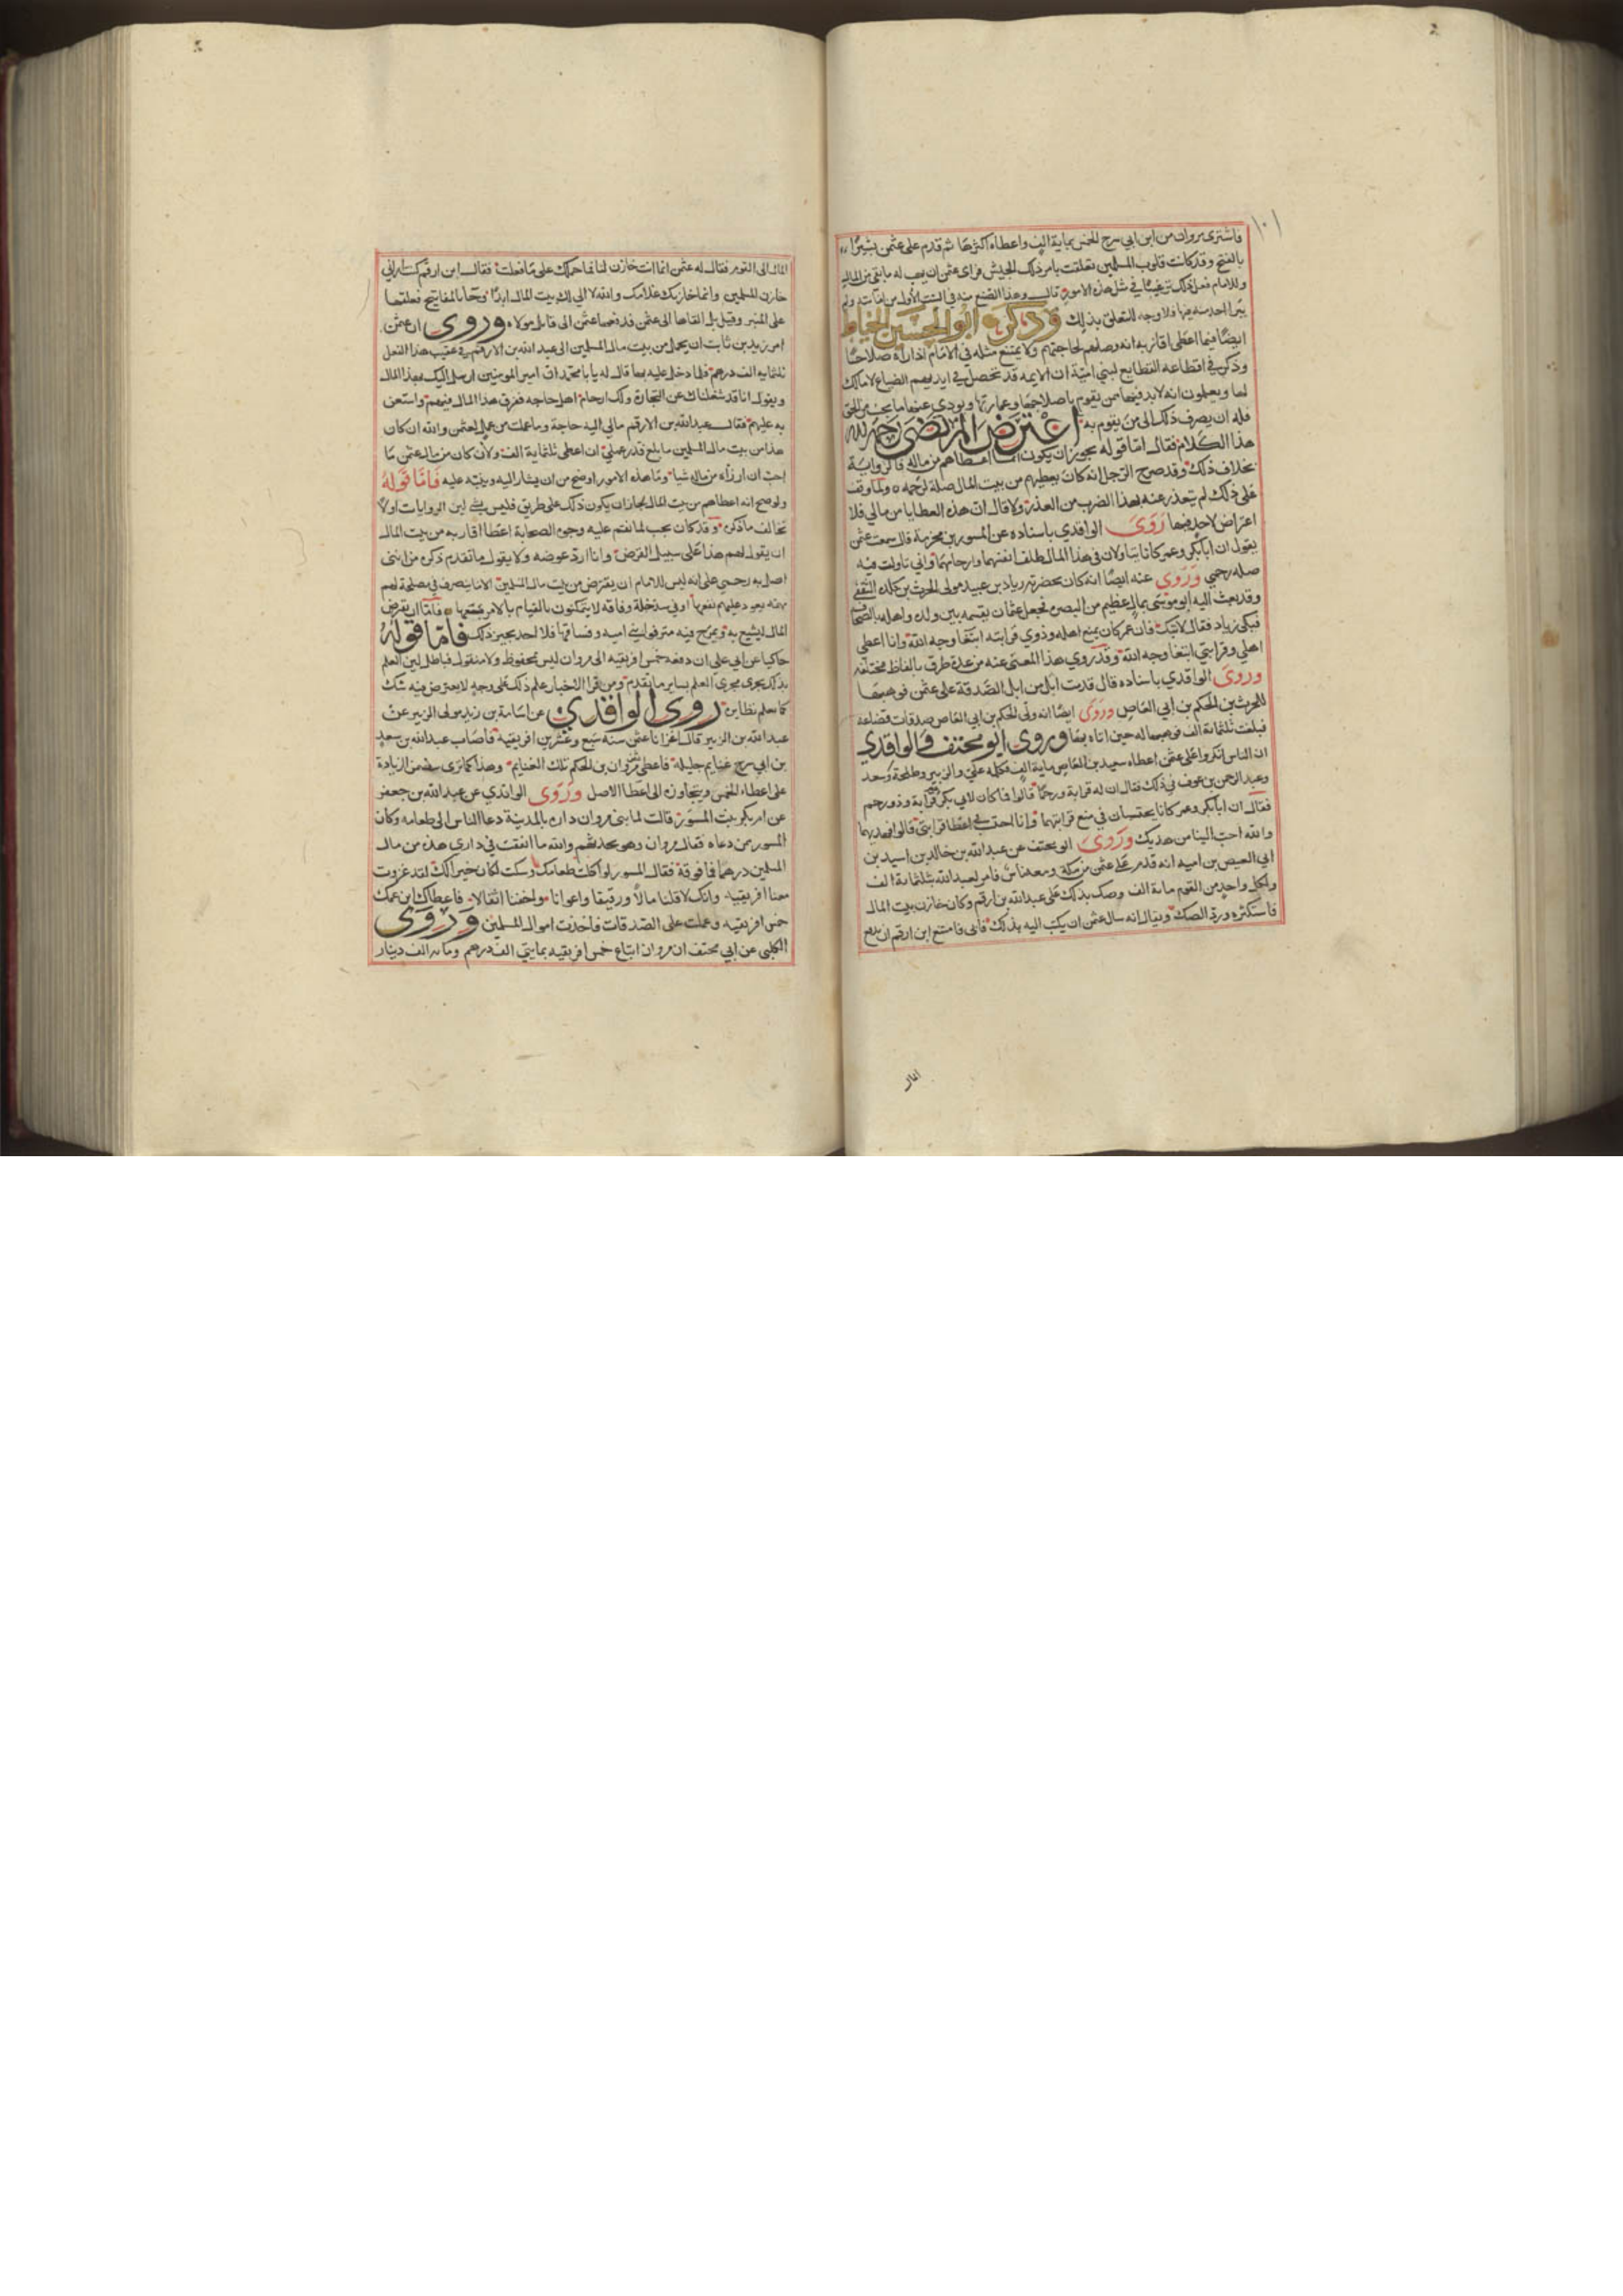 ١٠١
فاشترى مروان من ابن ابي سرح الخمس بماية الف واعطاه اكثرها ثم قدم على عثمن بشيرًا
بالفتح وقد كانت قلوب المسلمين تعلقت بامر ذلك الجيش فراى عثمن ان يهب له ما بقي من المال
وللامام فعل ذلك ترغيبًا في مثل هذه الامور قال وهذا الصنع منه في السنة الاولى من امامته ولم
يبرا احد منه فيها فلا وجه للتعلق بذلك وذكر ابو الحسين الخياط
ايضًا فيما اعطى اقاربه انه وصلهم لحاجتهم ولا يمتنع مثله في الامام اذا راه صلاحًا
وذكر في اقطاعه القطايع لبني امية ان الايمه قد تحصل في ايديهم الضياع لا مالك
لها ويعلمون انه لا بد فيها ممن يقوم باصلاحها وعمارتها ويودي عنها ما يجب من الحق
فله ان يصرف ذلك الى من يقوم به اعترض المرتضى رحمه الله
هذا الكلام فقال اما قوله يجوز ان يكون انما اعطاهم من ماله فالرواية
بخلاف ذلك وقد صرح الرجل انه كان يعطيهم من بيت المال صلة لرحمه ولما وقف
على ذلك لم يتعذر عنه بهذا الضرب من العذر ولا قال ان هذه العطايا من مالي فلا
اعتراض لاحد فيها روى الواقدي باسناده عن المسور بن مخرمة قال سمعت عثمن
يقول ان ابا بكر وعمر كانا يتاولان في هذا المال ظلف انفسهما وارحامهما واني تاولت فيه
صله رحمي وروى عنه ايضًا انه كان بحضرته زياد بن عبيد مولى الحرث بن كلده الثقفي
وقد بعث اليه ابو موسى بمال عظيم من البصره فجعل عثمان يقسمه بين ولده واهله بالصحاف
فبكى زياد فقال لا تبك فان عمر كان يمنع اهله وذوي قرابته ابتغا وجه الله وانا اعطي
اهلي وقرابتي ابتغا وجه الله وقد روي هذا المعنى عنه من عدة طرق بالفاظ مختلفه
وروى الواقدي باسناده قال قدمت ابل من ابل الصدقة على عثمن فوهبها
للحرث بن الحكم بن ابي العاص وروى ايضًا انه ولى الحكم بن ابي العاص صدقات قضاعه
فبلغت ثلثماية الف فوهبها له حين اتاه بها وروى ابو مخنف والواقدي
ان الناس انكروا على عثمن اعطاه سعيد بن العاص ماية الف فكلمه علي والزبير وطلحة وسعد
وعبد الرحمن بن عوف في ذلك فقال ان له قرابة ورحمًا قالوا فما كان لابي بكر قرابة وذو رحم
فقال ان ابا بكر وعمر كانا يحتسبان في منع قرابتهما وانا احتسب في اعطا قرابتي قالوا فهديهما
والله احب الينا من هديك وروى ابو مخنف عن عبد الله بن خالد بن اسيد بن
ابي العيص بن اميه انه قدم على عثمن من مكة ومعه ناس فامر لعبد الله بثلثماية الف
ولكل واحد من القوم ماية الف وصك بذلك على عبد الله بن ارقم وكان خازن بيت المال
فاستكثره ورد الصك ويقال انه سال عثمن ان يكتب اليه بذلك فابى فامتنع ابن ارقم ان يدفع
المال الى القوم فقال له عثمن انما انت خازن لنا فما حملك على ما فعلت فقال ابن ارقم كنت اراني
خازن المسلمين وانما خازنك غلامك والله لا الي لك بيت المال ابدًا وجا بالمفاتيح فعلقها
على المنبر وقيل بل القاها الى عثمن فدفعها عثمن الى قابل مولاه وروى ان عثمن
امر زيد بن ثابت ان يحمل من بيت مال المسلمين الى عبد الله بن الارقم في عقيب هذا الفعل
ثلثمايه الف درهم فلما دخل عليه بها قال له يا با محمد ان امير المومنين ارسل اليك بهذا المال
ويقول انا قد شغلناك عن التجارة ولك ارحام اهل حاجه ففرق هذا المال فيهم واستعن
به عليهم فقال عبد الله بن الارقم مالي اليه حاجة وما عملت من عمل لعثمن والله ان كان
هذا من بيت مال المسلمين ما بلغ قدر عملي ان اعطى ثلثماية الف ولان كان من مال عثمن ما
احب ان ارزاه من ماله شيا وما هذه الامور اوضح من ان يشار اليه وينبه عليه فاما قوله
ولو صح انه اعطاهم من بيت المال لجاز ان يكون ذلك على طريق فليس بشي لان الروايات اولا
تخالف ما ذكره وقد كان يجب لما نقم عليه وجوه الصحابة اعطا اقاربه من بيت المال
ان يقول لهم هذا على سبيل القرض وانا ارد عوضه ولا يقول ما تقدم ذكره من انني
اصل به رحمي على انه ليس للامام ان يقترض من بيت مال المسلمين الا ما ينصرف في مصلحة لهم
مهمه يعود عليهم نفعها او في سد خلة وفاقه لا يتمكنون بالقيام بالامر معها فاما ان يقرض
المال ليتسع به ويمرح فيه مترفوا بني اميه وفساقها فلا احد يجيز ذلك فاما قوله
حاكيا عن ابي علي ان دفعه خمس افريقيه الى مروان ليس بمحفوظ ولا منقول فباطل لان العلم
بذلك يجري مجرى العلم بساير ما تقدم ومن قرا الاخبار علم ذلك على وجه لا يعترض فيه شك
كما يعلم نظايره روى الواقدي عن اسامة بن زيد مولى الزبير عن
عبد الله بن الزبير قال اغزانا عثمن سنة سبع وعشرين افريقيه فاصاب عبد الله بن سعد
بن ابي سرح غنايم جليله فاعطى مروان بن الحكم تلك الغنايم وهذا كما ترى يتضمن الزيادة
على اعطاء الخمس ويتجاوزه الى اعطا الاصل وروى الواقدي عن عبد الله بن جعفر
عن ام بكر بنت المسور قالت لما بنى مروان داره بالمدينة دعا الناس الى طعامه وكان
المسور ممن دعاه فقال مروان وهو يحدثهم والله ما انفقت في داري هذه من مال
المسلمين درهما فما فوقه فقال المسور لو اكلت طعامك وسكت لكان خيرا لك لقد غزوت
معنا افريقيه وانك لاقلنا مالا ورقيقا واعوانا واخفنا اثقالا فاعطاك ابن عمك
خمس افريقيه وعملت على الصدقات فاخذت اموال المسلمين وروى
الكلبي عن ابي مخنف ان مروان ابتاع خمس افريقيه بمايتي الف درهم وماية الف دينار